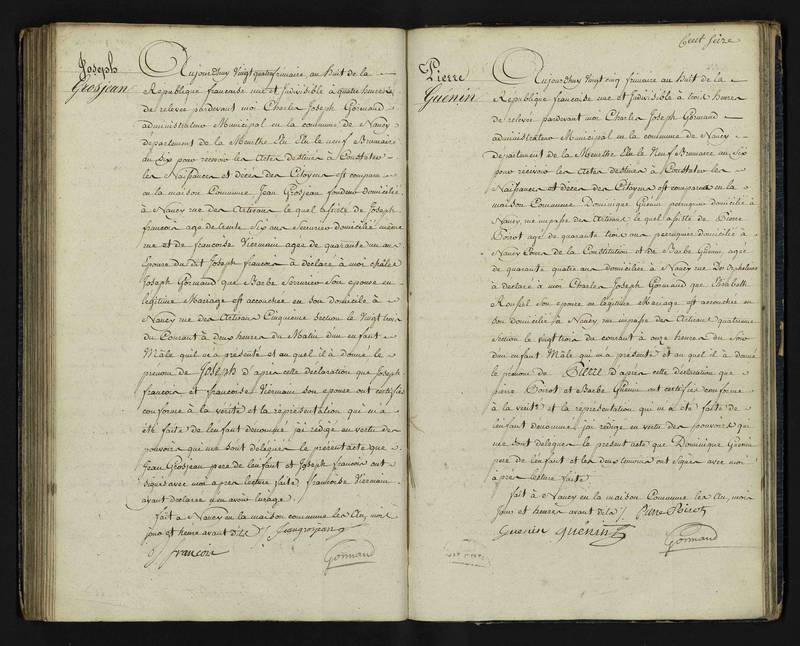 Joseph
Grosjean
Aujourdhuy Vingt quatre frimaire an Huit de la
République francaise une et Indivisible à quatre heures
de relevée pardevant moi Charles Joseph Gormand
administrateur Municipal en la commune de Nancy
département de la Meurthe Elu le neuf Brumaire
an Six pour recevoir les Actes destinés à Constater
les Naissances et décès des Citoyens est comparu
en la maison Commune Jean Grosjean fondeur domicilié
à Nancy rue des Artisans le quel assisté de Joseph
francois age de trente Six ans Serrurier domicilié même
rue et de francoise Viermann agee de quarante un ans
Epouse du dit Joseph francois à déclaré à moi Charles
Joseph Gormand que Barbe Serrurier Son epouse en
légitime Mariage est accouchée en son domicile à
Nancy rue des Artisans Cinquième Section le Vingt trois
du Courant à deux heures du Matin d'un enfant
Mâle quil m'a présenté et au quel il à donné le
prenom de Joseph d'apres cette declaration que Joseph
francois et francoise Viermann son epouse ont certifiés
conforme à la vérité et la représentation qui m'a
été faite de lenfant denommé j'ai rédigé en vertu des
pouvoirs qui me sont délégués le présent acte que
Jean Grosjean pere de lenfant et Joseph francois ont
signés avec moi apres lecture faite francoise Viermann
ayant declarée n'en avoir l'usage
fait à Nancy en la maison commune les an, mois
jour et heure avant dits / Jeangrosjean
J francois
Gormand
Cent Seize
Pierre
Guenin
Aujourdhuy Vingt cinq frimaire an Huit de la
République francaise une et Indivisible à trois heures
de relevée pardevant moi Charles Joseph Gormand
administrateur Municipal en la commune de Nancy
departement de la Meurthe Elu le Neuf Brumaire an Six
pour recevoir les Actes destinés à Constater les
Naissances et décès des Citoyens est comparu en la
maison Commune Dominique Guénin perruquier domicilié à
Nancy, rue impasse des Artisans le quel assisté de Pierre
Poirot agé de quarante trois ans perruquier domicilié à
Nancy Cours de la Constitution et de Barbe Guenin agée
de quarante quatre ans domiciliée à Nancy rue des Orphelines
à declaré à moi Charles Joseph Gormand que Elisabeth
Roussel son épouse en légitime Mariage est accouchée en
son domicile à Nancy rue impasse des Artisans quatrieme
Section le vingt trois du courant à onze heures du Soir
d'un enfant Mâle qui m'a présenté et au quel il à donné
le prénom de Pierre d'apres cette declaration que
pierre Poirot et Barbe Guenin ont certifiés conforme
à la verité et la representation qui m'a été faite de
lenfant denommé j'ai redigé en vertu des pouvoirs qui
me sont delegues le present acte que Dominique Guenin
pere de lenfant et les deux temoins ont signes avec moi
après lecture faite
fait à Nancy en la maison Commune les an, mois
jour et heure avant dits / Pierre Poirot
Guenin guénin
Gormand